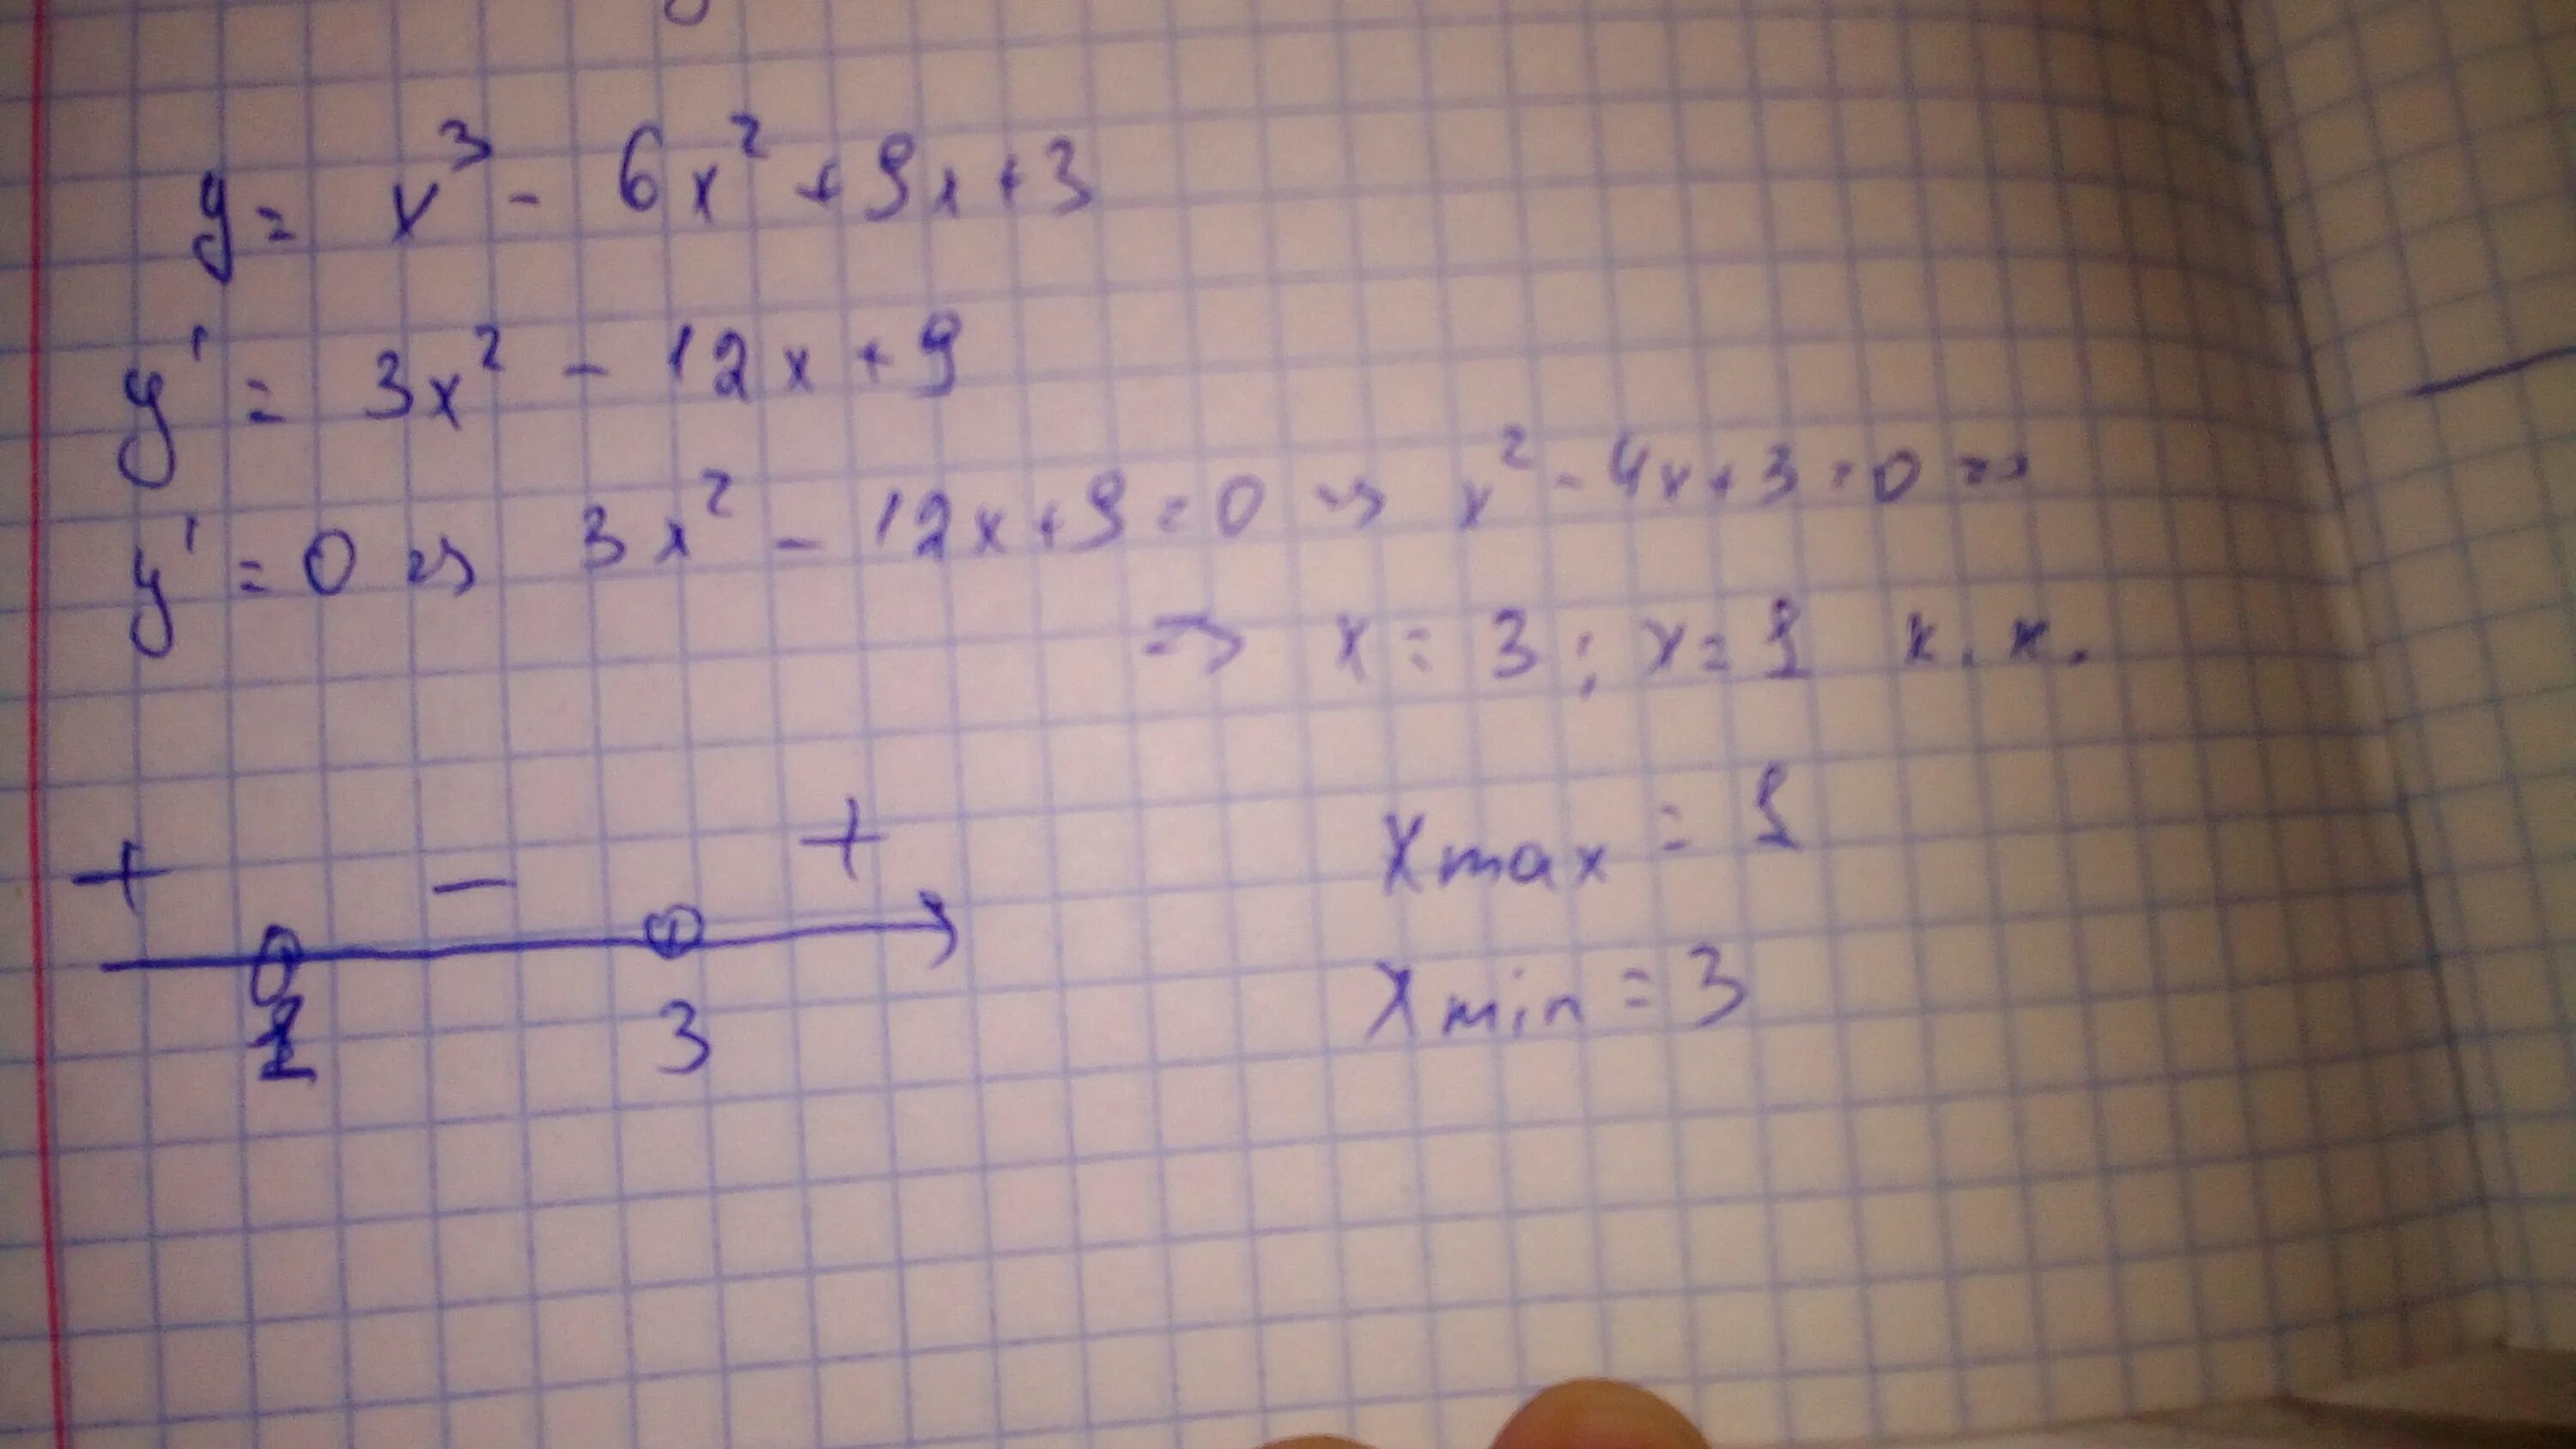 y = x³ - 6x² + 9x + 3
y' = 3x² - 12x + 9
y' = 0 => 3x² - 12x + 9 = 0 => x² - 4x + 3 = 0 =>
=> x = 3 ; x = 1 к. к.
+ - +
1 3
x max = 1
x min = 3